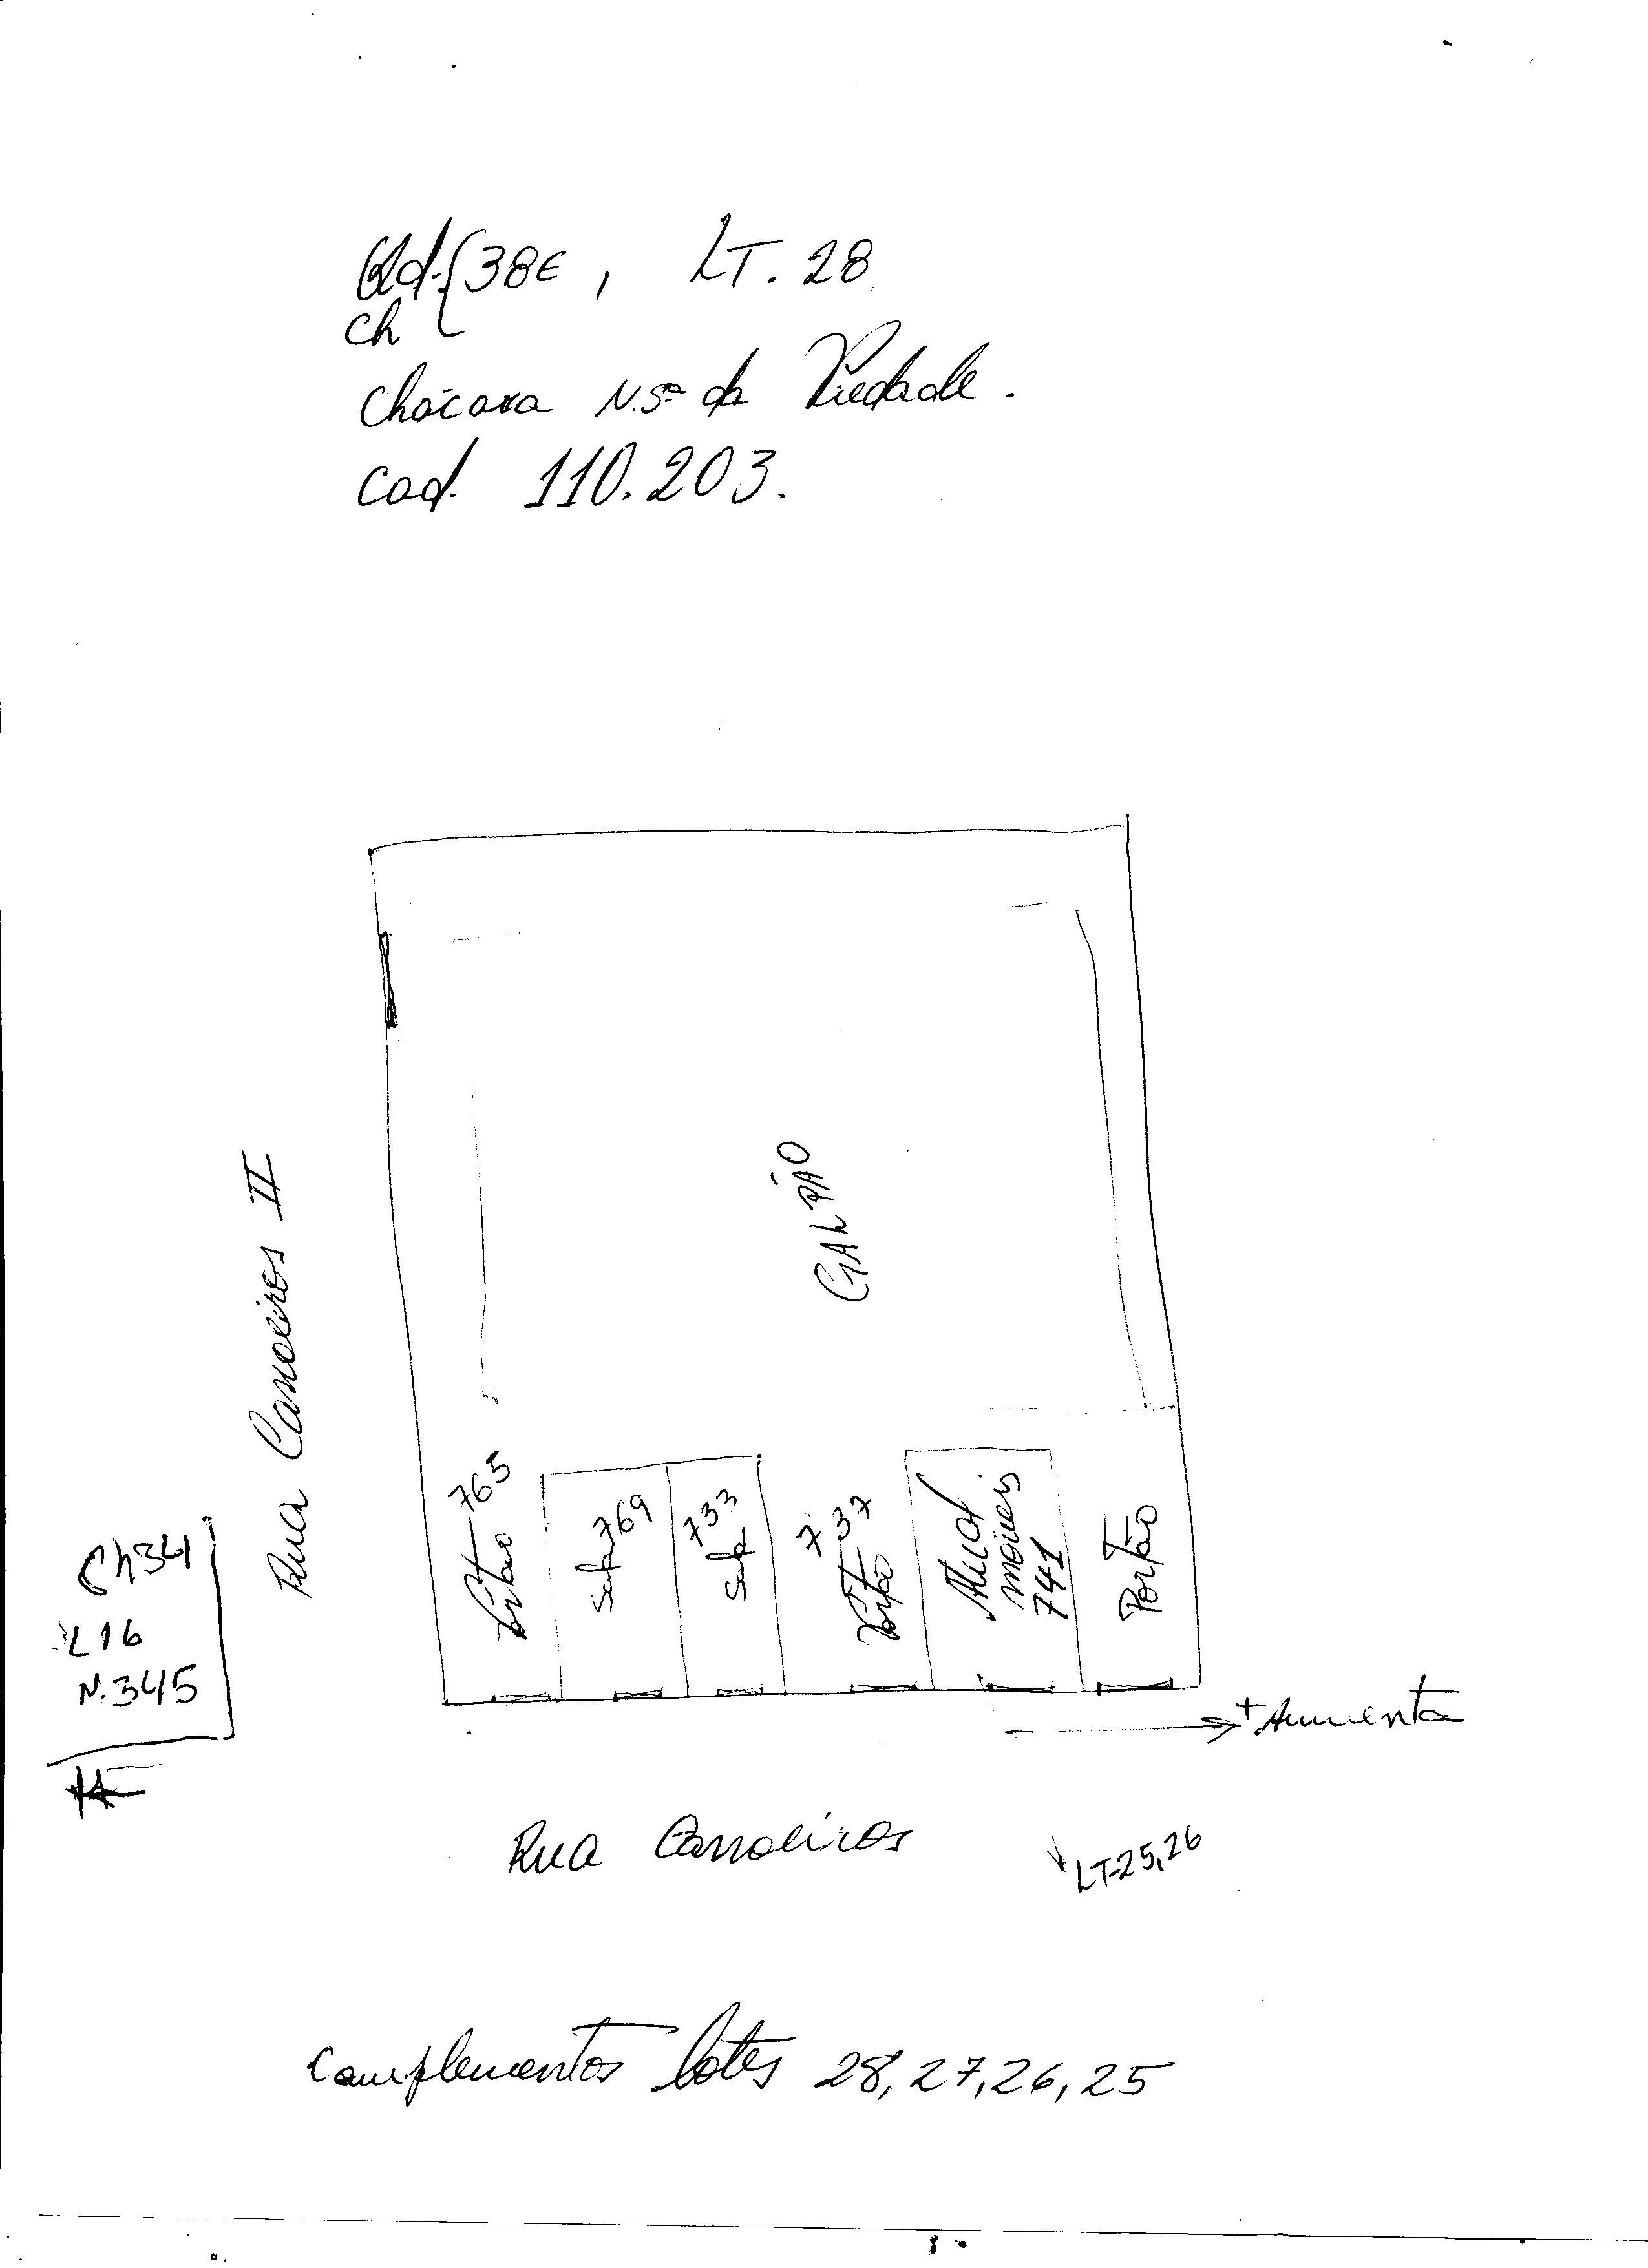 Qd. 38E, LT. 28
Ch
Chácara N.Sª da Piedade.
Cad. 110.203.
GALPÃO
Rua Canoeiros II
Portão 765
Sala 769
733
Sala
737
Portão
móveis
741
Portão
Ch34
L16
N.345
+ Aumenta
Rua Canoeiros
LT-25,26
Complementos lotes 28,27,26,25